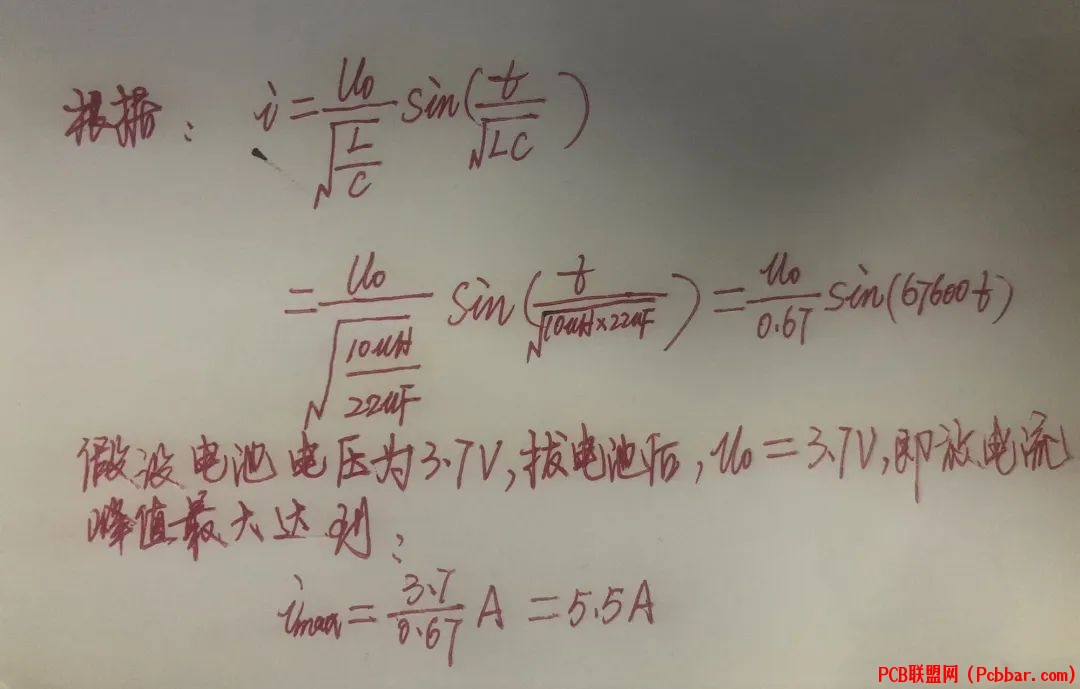 根据: i = U₀/√(L/C) sin(t/√(LC))
= U₀/√(10uH/22uF) sin(t/√(10uH×22uF)) = U₀/0.67 sin(67600t)
假设电池电压为3.7V,拔电池后,U₀=3.7V,即放电流
峰值最大达到:
imax = 3.7/0.67 A = 5.5A
PCB联盟网(Pcbbar.com)